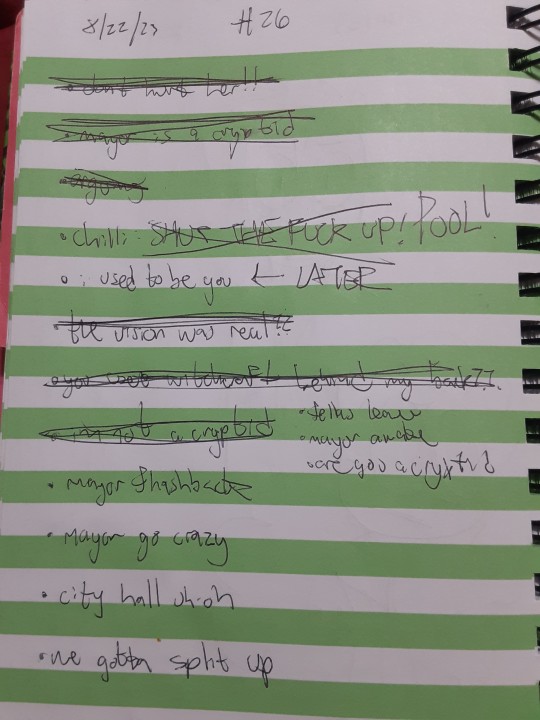 8/22/23 #26
• dont hurt her!!
• mayor is a cryptid
• chilli: SHUT THE FUCK UP! POOL!
• i used to be you ← LATER
• the vision was real??
• you used witchcraft behind my back??
• im not a cryptid
• fellas leave
• mayor awake
• are you a cryptid
• mayor flashback
• mayor go crazy
• city hall uh-oh
• we gotta split up